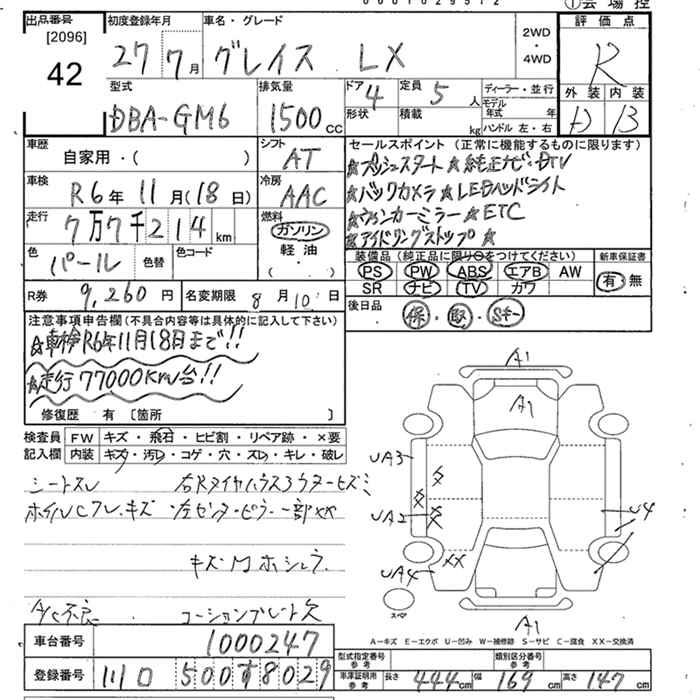 出品番号 初度登録年月 車名・グレード 2WD・4WD 評価点
[2096]
42 27年 7月 グレイス LX R
外装 内装
D B
型式 排気量 ドア 4 定員 5人 ディーラー・並行
DBA-GM6 1500cc 形状 積載 kg モデル年式 年
ハンドル 左・右
車歴 シフト セールスポイント (正常に機能するものに限ります)
自家用・( ) AT ☆プッシュスタート☆純正ナビ・DTV
車検 冷房 ☆バックカメラ☆LEDヘッドライト
R6年11月(18日) AAC ☆ウィンカーミラー☆ETC
走行 燃料 ☆アイドリングストップ☆
7万7千214km ガソリン
軽油
色 パール 色替 色コード
装備品 (純正品に限り○をつけてください) 新車保証書
PS PW ABS エアB AW 有・無
SR ナビ TV カワ
R券 9,260円 名変期限 8月10日
後日品 保・取・Sキー
注意事項申告欄(不具合内容等は具体的に記入して下さい)
☆車検R6年11月18日まで!!
☆走行77000Km台!!
修復歴 有 〔箇所 〕
検査員記入欄 FW キズ・飛石・ヒビ割・リペア跡・×要
内装 キズ・汚レ・コゲ・穴・スレ・キレ・破レ
シートスレ
ホイルCフレ、キズ 左センターピラー一部
キズ
A/C不良 コーションプレート欠
A1
A1
UA3
UA2
U4
XX
UA4
スペア
A1
A－キズ E－エクボ U－凹み W－補修跡 S－サビ C－腐食 XX－交換済
車台番号 1000247
登録番号 川口 500 す 8029
型式指定番号 参考 類別区分番号 参考
車庫証明用 参考 長さ 444cm 幅 169cm 高さ 147cm